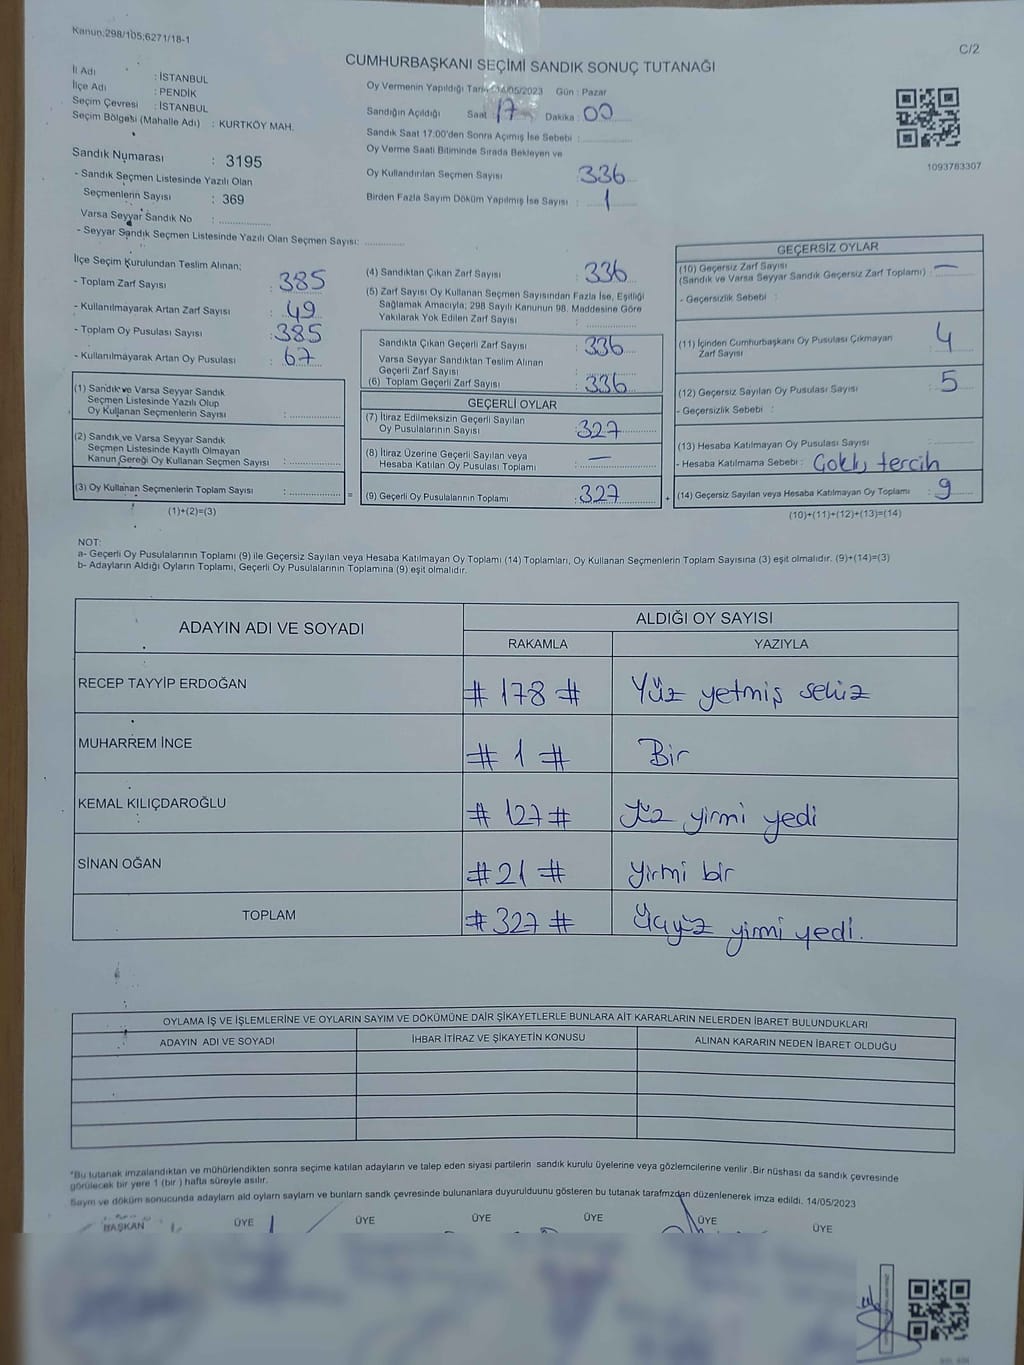 Kanun:298/105;6271/18-1
C/2
CUMHURBAŞKANI SEÇİMİ SANDIK SONUÇ TUTANAĞI
İl Adı : İSTANBUL
İlçe Adı : PENDİK
Seçim Çevresi : İSTANBUL
Seçim Bölgesi (Mahalle Adı) : KURTKÖY MAH.
Sandık Numarası : 3195
- Sandık Seçmen Listesinde Yazılı Olan
Seçmenlerin Sayısı : 369
Varsa Seyyar Sandık No :
- Seyyar Sandık Seçmen Listesinde Yazılı Olan Seçmen Sayısı:
Oy Vermenin Yapıldığı /05/2023 Gün : Pazar
Sandığın Açıldığı Saat : 17 Dakika : 00
Sandık Saat 17:00'den Sonra Açımış İse Sebebi :
Oy Verme Saati Bitiminde Sırada Bekleyen ve
Oy Kullandırılan Seçmen Sayısı : 336
Birden Fazla Sayım Döküm Yapılmış İse Sayısı : 1
1093783307
İlçe Seçim Kurulundan Teslim Alınan;
- Toplam Zarf Sayısı : 385
- Kullanılmayarak Artan Zarf Sayısı : 49
- Toplam Oy Pusulası Sayısı : 385
- Kullanılmayarak Artan Oy Pusulası : 67
(1) Sandık ve Varsa Seyyar Sandık
Seçmen Listesinde Yazılı Olup
Oy Kullanan Seçmenlerin Sayısı :
(2) Sandık ve Varsa Seyyar Sandık
Seçmen Listesinde Kayıtlı Olmayan
Kanun Gereği Oy Kullanan Seçmen Sayısı :
(3) Oy Kullanan Seçmenlerin Toplam Sayısı :
(1)+(2)=(3)
(4) Sandıktan Çıkan Zarf Sayısı : 336
(5) Zarf Sayısı Oy Kullanan Seçmen Sayısından Fazla İse, Eşitliği
Sağlamak Amacıyla; 298 Sayılı Kanunun 98. Maddesine Göre
Yakılarak Yok Edilen Zarf Sayısı :
Sandıkta Çıkan Geçerli Zarf Sayısı : 336
Varsa Seyyar Sandıktan Teslim Alınan
Geçerli Zarf Sayısı :
(6) Toplam Geçerli Zarf Sayısı : 336
GEÇERLİ OYLAR
(7) İtiraz Edilmeksizin Geçerli Sayılan
Oy Pusulalarının Sayısı : 327
(8) İtiraz Üzerine Geçerli Sayılan veya
Hesaba Katılan Oy Pusulası Toplamı : —
= (9) Geçerli Oy Pusulalarının Toplamı : 327 +
GEÇERSİZ OYLAR
(10) Geçersiz Zarf Sayısı
(Sandık ve Varsa Seyyar Sandık Geçersiz Zarf Toplamı) : —
- Geçersizlik Sebebi :
(11) İçinden Cumhurbaşkanı Oy Pusulası Çıkmayan
Zarf Sayısı : 4
(12) Geçersiz Sayılan Oy Pusulası Sayısı : 5
- Geçersizlik Sebebi :
(13) Hesaba Katılmayan Oy Pusulası Sayısı :
- Hesaba Katılmama Sebebi : Çoklu tercih
(14) Geçersiz Sayılan veya Hesaba Katılmayan Oy Toplamı : 9
(10)+(11)+(12)+(13)=(14)
NOT:
a- Geçerli Oy Pusulalarının Toplamı (9) ile Geçersiz Sayılan veya Hesaba Katılmayan Oy Toplamı (14) Toplamları, Oy Kullanan Seçmenlerin Toplam Sayısına (3) eşit olmalıdır. (9)+(14)=(3)
b- Adayların Aldığı Oyların Toplamı, Geçerli Oy Pusulalarının Toplamına (9) eşit olmalıdır.
ADAYIN ADI VE SOYADI ALDIĞI OY SAYISI
RAKAMLA YAZIYLA
RECEP TAYYİP ERDOĞAN # 178 # Yüz yetmiş sekiz
MUHARREM İNCE # 1 # Bir
KEMAL KILIÇDAROĞLU # 127 # Yüz yirmi yedi
SİNAN OĞAN # 21 # Yirmi bir
TOPLAM # 327 # Üçyüz yirmi yedi.
OYLAMA İŞ VE İŞLEMLERİNE VE OYLARIN SAYIM VE DÖKÜMÜNE DAİR ŞİKAYETLERLE BUNLARA AİT KARARLARIN NELERDEN İBARET BULUNDUKLARI
ADAYIN ADI VE SOYADI İHBAR İTİRAZ VE ŞİKAYETİN KONUSU ALINAN KARARIN NEDEN İBARET OLDUĞU
*Bu tutanak imzalandıktan ve mühürlendikten sonra seçime katılan adayların ve talep eden siyasi partilerin sandık kurulu üyelerine veya gözlemcilerine verilir .Bir nüshası da sandık çevresinde
görülecek bir yere 1 (bir ) hafta süreyle asılır.
Sayım ve döküm sonucunda adayların ald oyların sayların ve bunların sandk çevresinde bulunanlara duyurulduunu gösteren bu tutanak tarafmzdan düzenlenerek imza edildi. 14/05/2023
BAŞKAN ÜYE ÜYE ÜYE ÜYE ÜYE ÜYE